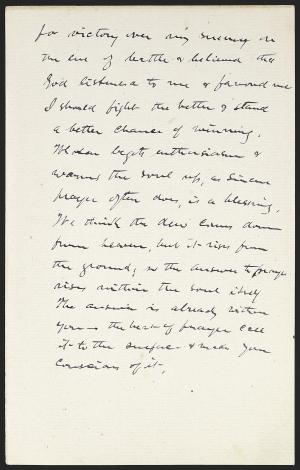 for victory over my enemy on
the eve of battle & believed that
God listened to me & favored me
I should fight the better & stand
a better chance of winning.
begets enthusiasm &
warms the soul up, as sincere
prayer often does, is a blessing.
We think the dew comes down
from heaven, but it rises from
the ground; so the answer to prayer
rises within the soul itself
The answer is already within
you — the best of prayer call
it to the surface & make you
conscious of it.